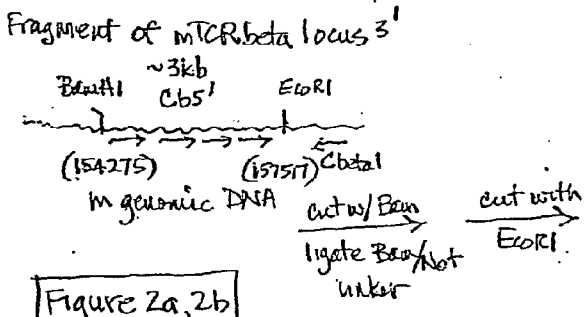 Fragment of mTCRbeta locus 3'
~3kb
BamH1 Cb5' EcoR1
(154275) (157517) Cbeta1
m genomic DNA
cut w/ Bam
ligate Bam/Not
linker
cut with
EcoR1
Figure 2a, 2b